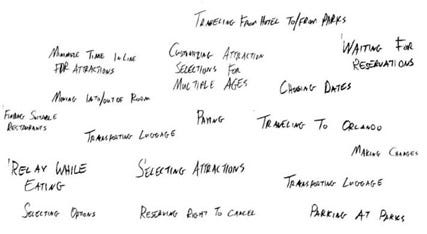 TRAVELING FROM HOTEL TO/FROM PARKS
MINIMIZE TIME IN LINE
FOR ATTRACTIONS
CUSTOMIZING ATTRACTION
SELECTIONS FOR
MULTIPLE AGES
'WAITING FOR
RESERVATIONS
MOVING INTO/OUT OF ROOM
CHOOSING DATES
'FINDING SUITABLE
RESTAURANTS
PAYING
'TRAVELING TO ORLANDO
TRANSPORTING LUGGAGE
MAKING CHANGES
'RELAX WHILE
EATING
'SELECTING ATTRACTIONS
TRANSPORTING LUGGAGE
SELECTING OPTIONS
RESERVING RIGHT TO CANCEL
PARKING AT PARKS